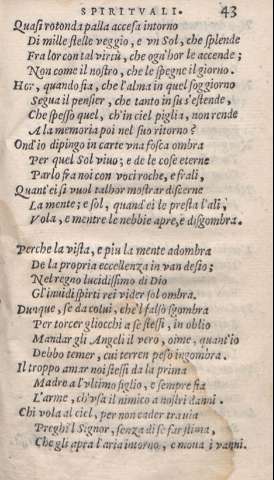 SPIRITVALI. 43
Quasi rotonda palla accesa intorno
Di mille stelle veggio, e vn Sol, che splende
Fra lor con tal virtù, che ogn'hor le accende;
Non come il nostro, che le spegne il giorno.
Hor, quando fia, che l'alma in quel soggiorno
Segua il pensier, che tanto in su s'estende,
Che spesso quel, ch'in ciel piglia, non rende
A la memoria poi nel suo ritorno?
Ond'io dipingo in carte vna fosca ombra
Per quel Sol viuo; e de le cose eterne
Parlo fra noi con voci roche, e frali,
Quant'ei si vuol talhor mostrar discerne
La mente; e sol, quand'ei le presta l'ali,
Vola, e mentre le nebbie apre, e disgombra.
Perche la vista, e piu la mente adombra
De la propria eccellenza in van desio;
Nel regno lucidissimo di Dio
Gl'inuidi spirti rei vider sol ombra.
Dunque, se da colui, che'l falso sgombra
Per torcer gliocchi a se stessi, in oblio
Mandar gli Angeli il vero, oime, quant'io
Debbo temer, cui terren peso ingombra.
Il troppo amar noi stessi da la prima
Madre a l'vltimo figlio, e sempre fia
L'arme, ch'vsa il nimico a nostri danni.
Chi vola al ciel, per non cader tra via
Preghi'l Signor, senza di se far stima,
Che gli apra l'aria intorno, e moua i vanni.